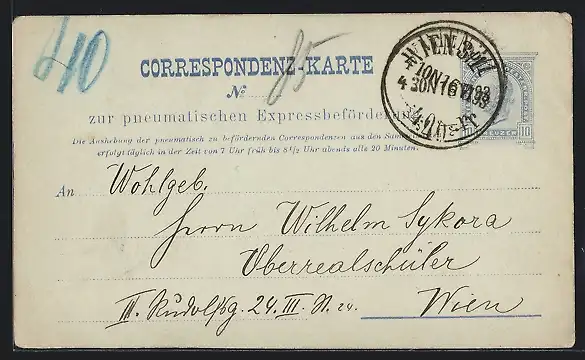 410
85
CORRESPONDENZ-KARTE
No
zur pneumatischen Expressbeförderung
Die Aushebung der pneumatisch zu befördernden Correspondenzen aus den Sammel
erfolgt täglich in der Zeit von 7 Uhr früh bis 8½ Uhr abends alle 20 Minuten.
WIEN
10
An Wohlgeb.
Herrn Wilhelm Sykora
Oberrealschüler
III. Rudolfsg. 24. III. St. 24. Wien